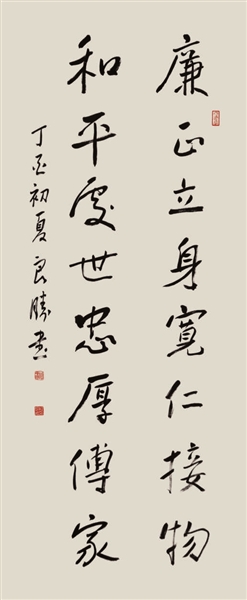 廉正立身寬仁接物
和平處世忠厚傳家
丁酉初夏良勝書